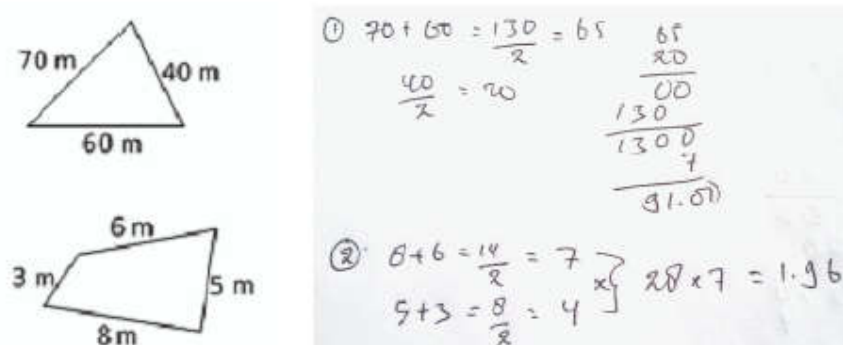 70 m
40 m
60 m
6 m
3 m
5 m
8 m
① 70 + 60 = 130/2 = 65
40/2 = 20
65
20
00
130
1300
7
91.00
② 8 + 6 = 14/2 = 7
5 + 3 = 8/2 = 4
x} 28 x 7 = 1.96